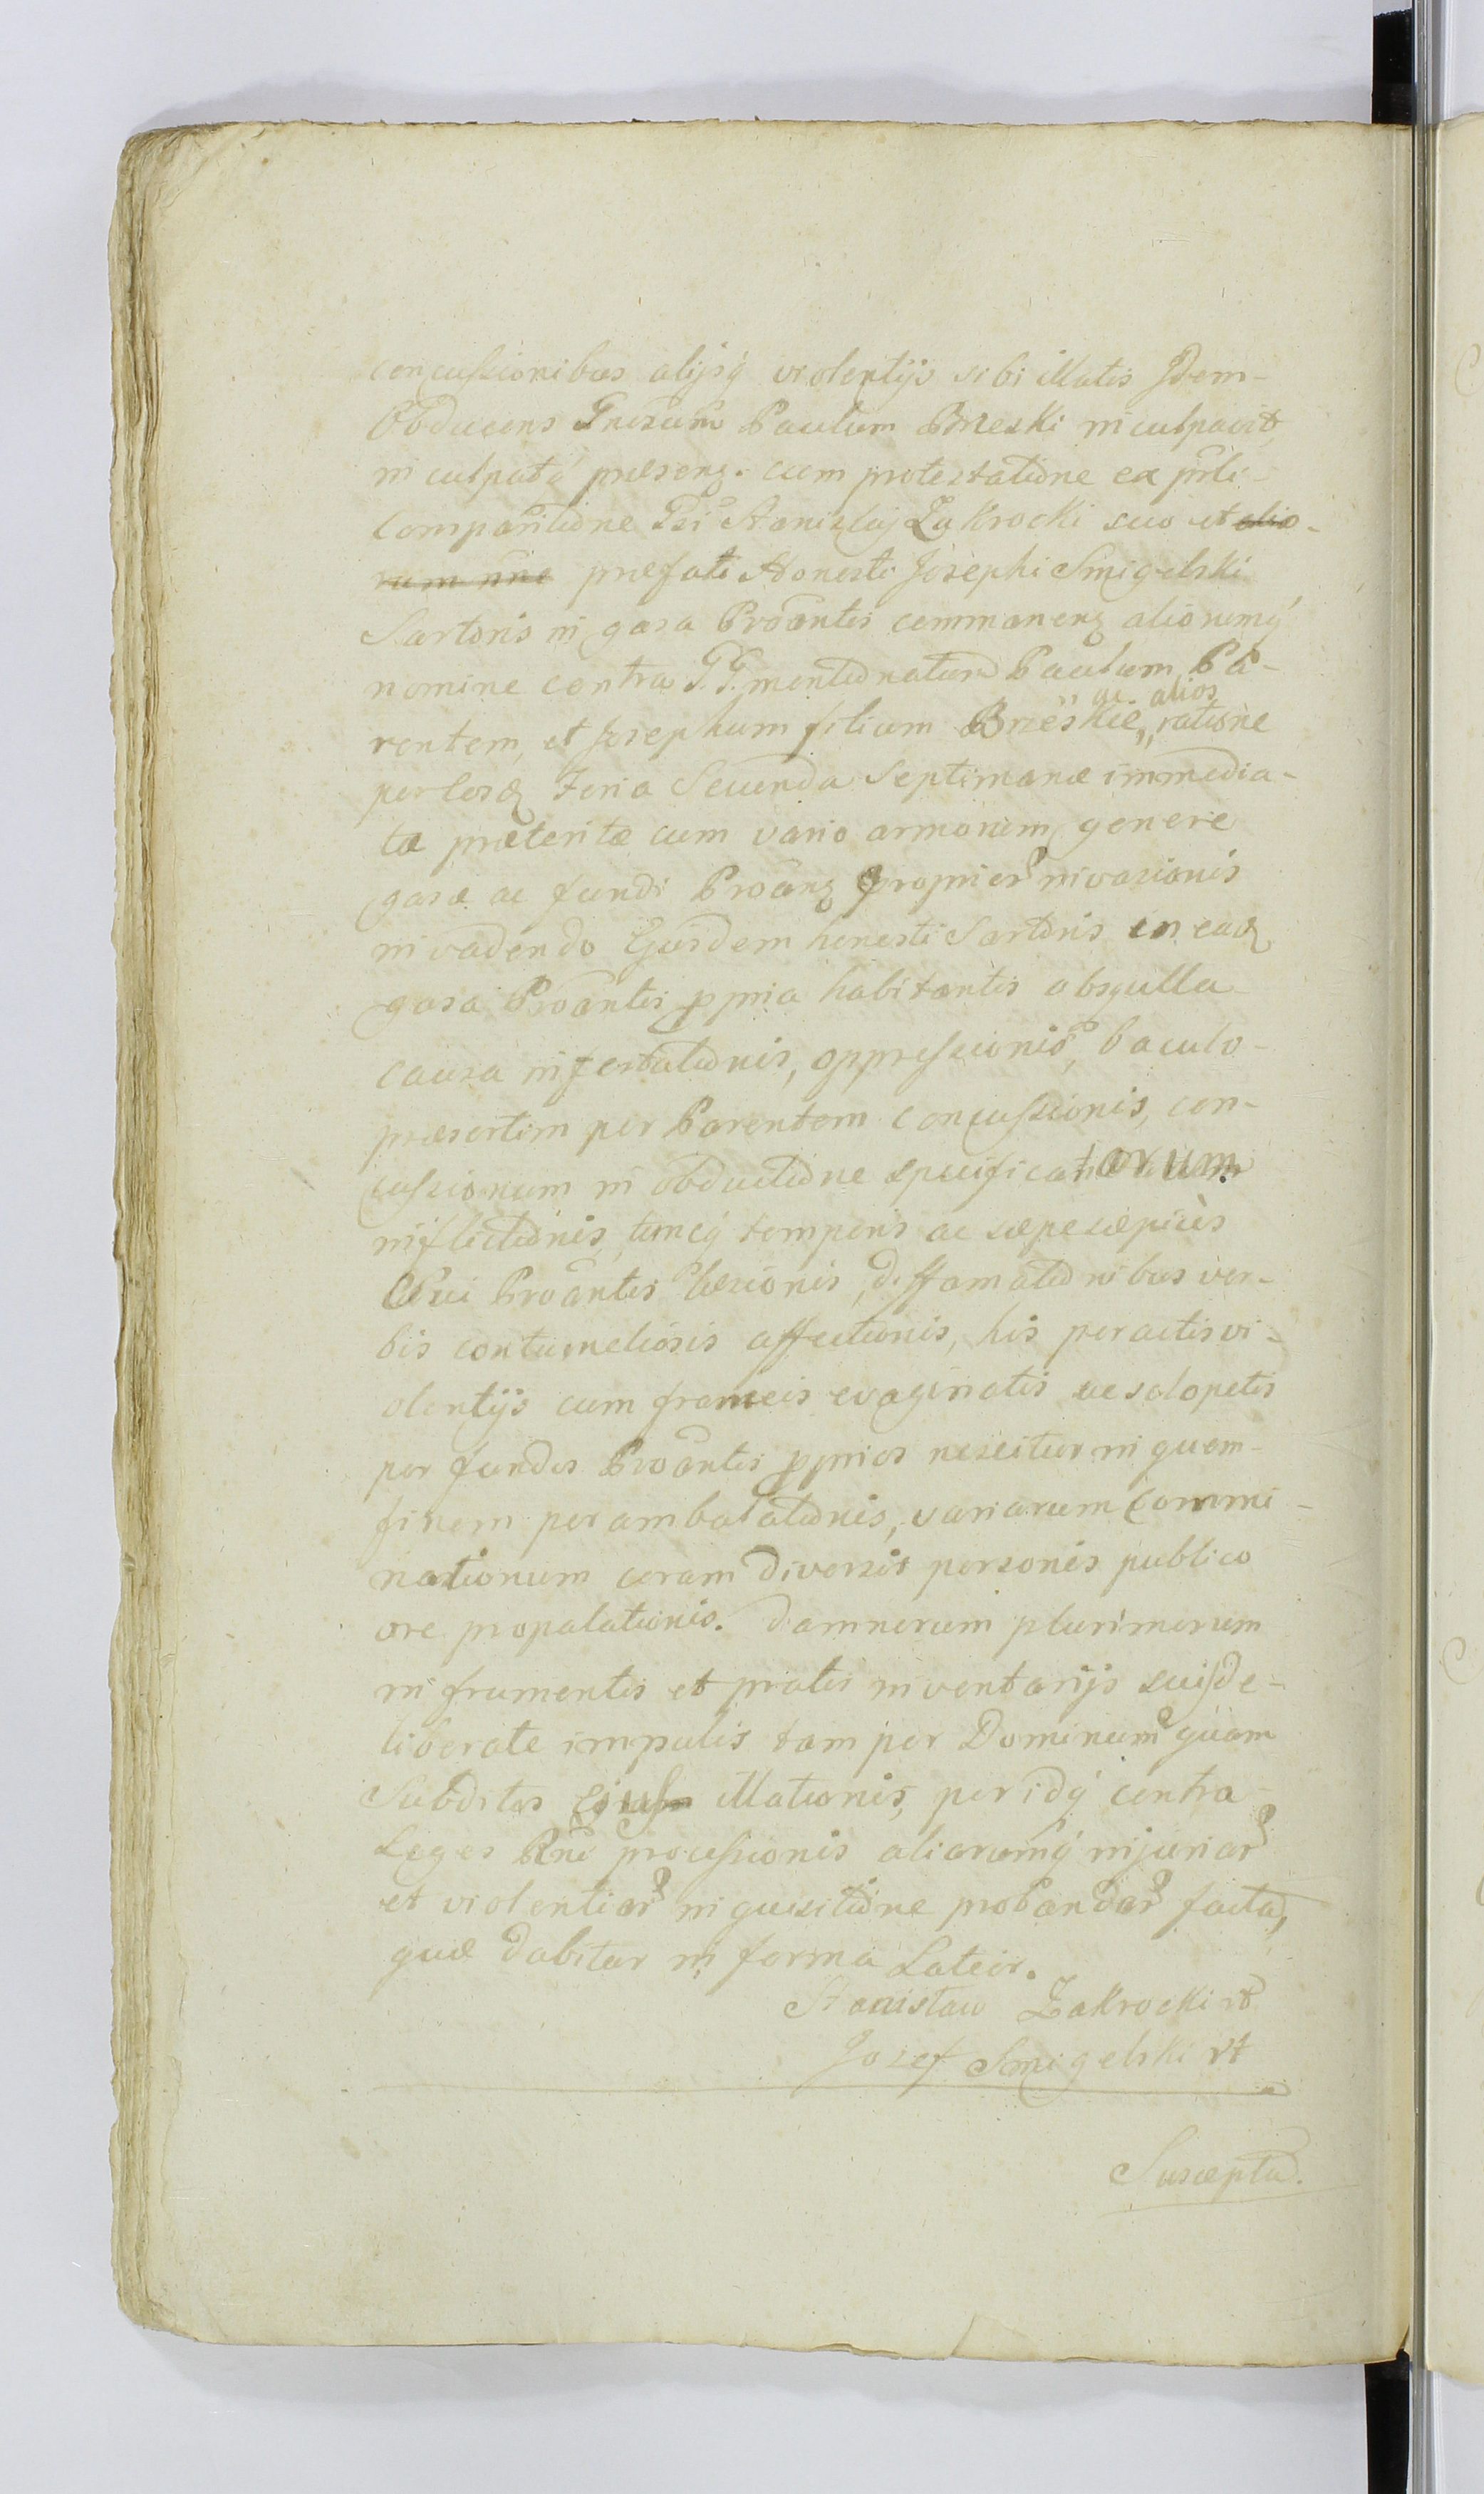 concussionibus alijsq violentijs sibi illatis Idem-
Obducens Gnrsum Paulum Brzeski inculpavit,
inculpatq præsens. cum protestatione ex prli
Comparitione Gsi Stanislaj Zakrocki suo et alio-
rum nne præfati Honesti Josephi Smigelski
Sartoris in gasa Proantis commanens aliorumq
nomine contra G. G. mentionatum Paulum Pa-
rentem, et Josephum filium Brzeskie, ac alios ratione
per eosd Feria Secunda Septimanæ immedia-
tæ præteritæ cum vario armorum genere
gasæ ac fundi Proans proprior invasionis
invadendo Ejusdem honesti Sartoris in ead
gasa Proantis ppria habitantis absq ulla
causa infestationis, oppressionis, baculo-
præsertim per Parentem concussionis, con-
cussionum in obductione specificatorum
inflictionis, tuncq temporis ac sæpe sæpius
Ipsi Proantis læsionis, diffamationibus ver-
bis contumeliosis affectionis, his peractis vi-
olentijs cum frameis evaginatis ac sclopetis
per fundos Proantis pprios nescitur in quem-
finem perambulationis, variarum Commi-
nationum coram diversis personis publico
ore propalationis. damnorum plurimorum
in frumentis et pratis inventarijs suis de-
liberate impulis tam per Dominum quam
Subditos Ejus illationis, per idq contra
Leges Rni processionis aliarumq injuriar
et violentiar inquisitione probandar facta,
quæ dabitur in forma Latior.
Stanisław Zakrocki
Jozef Smigelski
Suscepta.